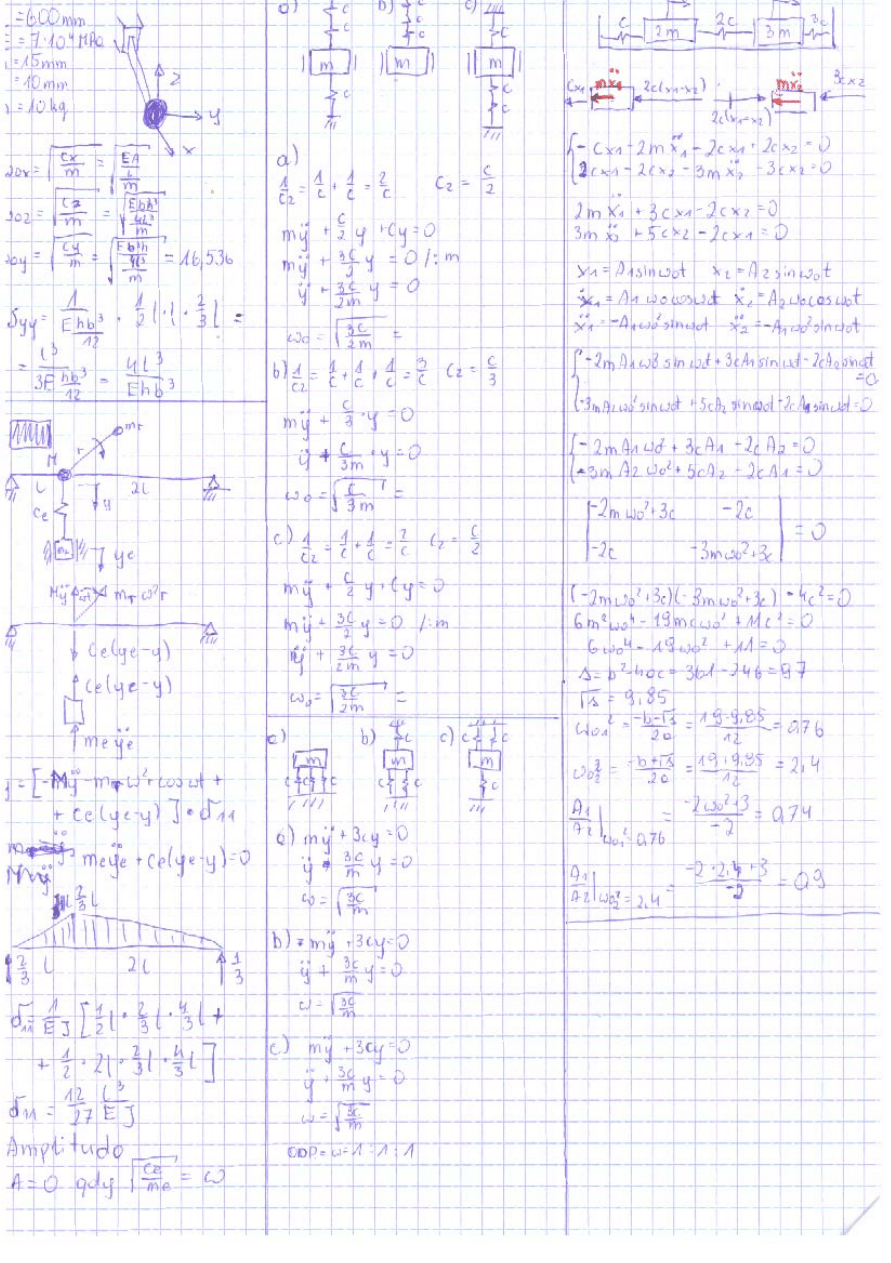 =600mm
= 7·10⁴ MPa
=15mm
=10mm
=10kg
z
y
x
ω0x = √(cx/m) = √((EA/l)/m)
ω0z = √(cz/m) = √((Ebh³/4l³)/m)
ω0y = √(cy/m) = √((Eb³h/4l³)/m) = 16,536
δyy = 1/(E hb³/12) · 1/2 l · l · 2/3 l =
= l³/(3E hb³/12) = 4l³/(Ehb³)
mr
r
M
l 2l
y
ce
me
ye
Mÿ ωt mrω²r
ce(ye-y)
ce(ye-y)
meÿe
y = [-Mÿ - mrω²r cosωt +
+ ce(ye-y)] · δ11
meÿe + ce(ye-y)=0
2/3 l
2/3 l 2l 1/3
δ11 = 1/EJ [1/2 l · 2/3 l · 4/3 l +
+ 1/2 · 2l · 2/3 l · 4/3 l]
δ11 = 12/27 l³/EJ
Amplituda
A=0 gdy √(ce/me) = ω
a) b) c)
c c c
c c c
m m m
c c
c c
a)
1/cz = 1/c + 1/c = 2/c cz = c/2
mÿ + c/2 y + cy = 0
mÿ + 3c/2 y = 0 /:m
ÿ + 3c/2m y = 0
ω0 = √(3c/2m) =
b) 1/cz = 1/c + 1/c + 1/c = 3/c cz = c/3
mÿ + c/3 · y = 0
ÿ + c/3m · y = 0
ω0 = √(c/3m) =
c) 1/cz = 1/c + 1/c = 2/c cz = c/2
mÿ + c/2 y + cy = 0
mÿ + 3c/2 y = 0 /:m
ÿ + 3c/2m y = 0
ω0 = √(3c/2m) =
a) b) c)
m m m
c c c c c c c
a) mÿ + 3cy = 0
ÿ + 3c/m y = 0
ω = √(3c/m)
b) mÿ + 3cy = 0
ÿ + 3c/m y = 0
ω = √(3c/m)
c) mÿ + 3cy = 0
ÿ + 3c/m y = 0
ω = √(3c/m)
ODP = ω = 1 : 1 : 1
c 2m 2c 3m 3c
cx1 mẍ1 2c(x1-x2) mẍ2 3cx2
2c(x1-x2)
-cx1 - 2mẍ1 - 2cx1 + 2cx2 = 0
2cx1 - 2cx2 - 3mẍ2 - 3cx2 = 0
2mẍ1 + 3cx1 - 2cx2 = 0
3mẍ2 + 5cx2 - 2cx1 = 0
x1 = A1sinω0t x2 = A2sinω0t
ẋ1 = A1ω0cosω0t ẋ2 = A2ω0cosω0t
ẍ1 = -A1ω0²sinω0t ẍ2 = -A1ω0²sinω0t
-2mA1ω0²sinω0t + 3cA1sinω0t - 2cA2sinω0t
=0
-3mA2ω0²sinω0t + 5cA2sinω0t - 2cA1sinω0t = 0
-2mA1ω0² + 3cA1 - 2cA2 = 0
-3mA2ω0² + 5cA2 - 2cA1 = 0
-2mω0²+3c -2c
= 0
-2c -3mω0²+3c
(-2mω0²+3c)(-3mω0²+3c) - 4c² = 0
6m²ω0⁴ - 19mcω0² + 11c² = 0
6ω0⁴ - 19ω0² + 11 = 0
Δ = b²-4ac = 361-246 = 97
√Δ = 9,85
ω01² = (-b-√Δ)/2a = (19-9,85)/12 = 0,76
ω02² = (-b+√Δ)/2a = (19+9,85)/12 = 2,4
A1/A2 |ω01²=0,76 = (-2ω0²+3)/-2 = 0,74
A1/A2 |ω02²=2,4 = (-2·2,4+3)/-2 = 0,9